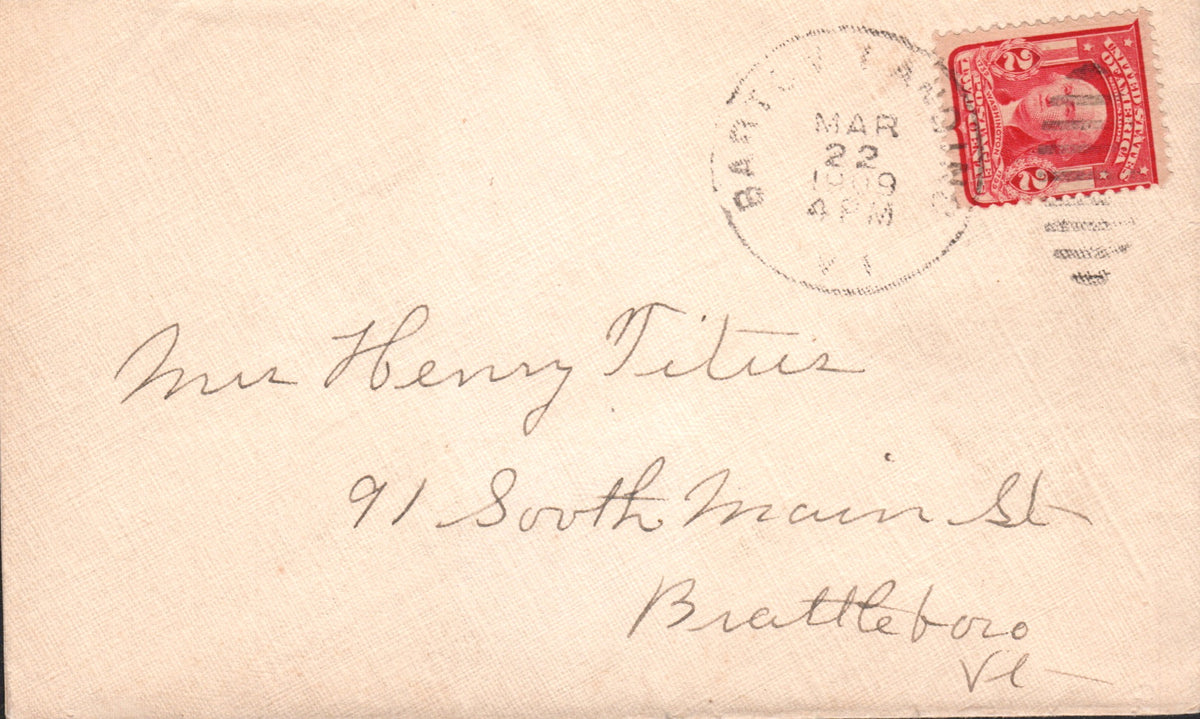 BARTON LANDING
MAR
22
1909
4 PM
VT
UNITED STATES
OF AMERICA
2 2
WASHINGTON
Mrs Henry Titus
91 South Main St
Brattleboro
Vt